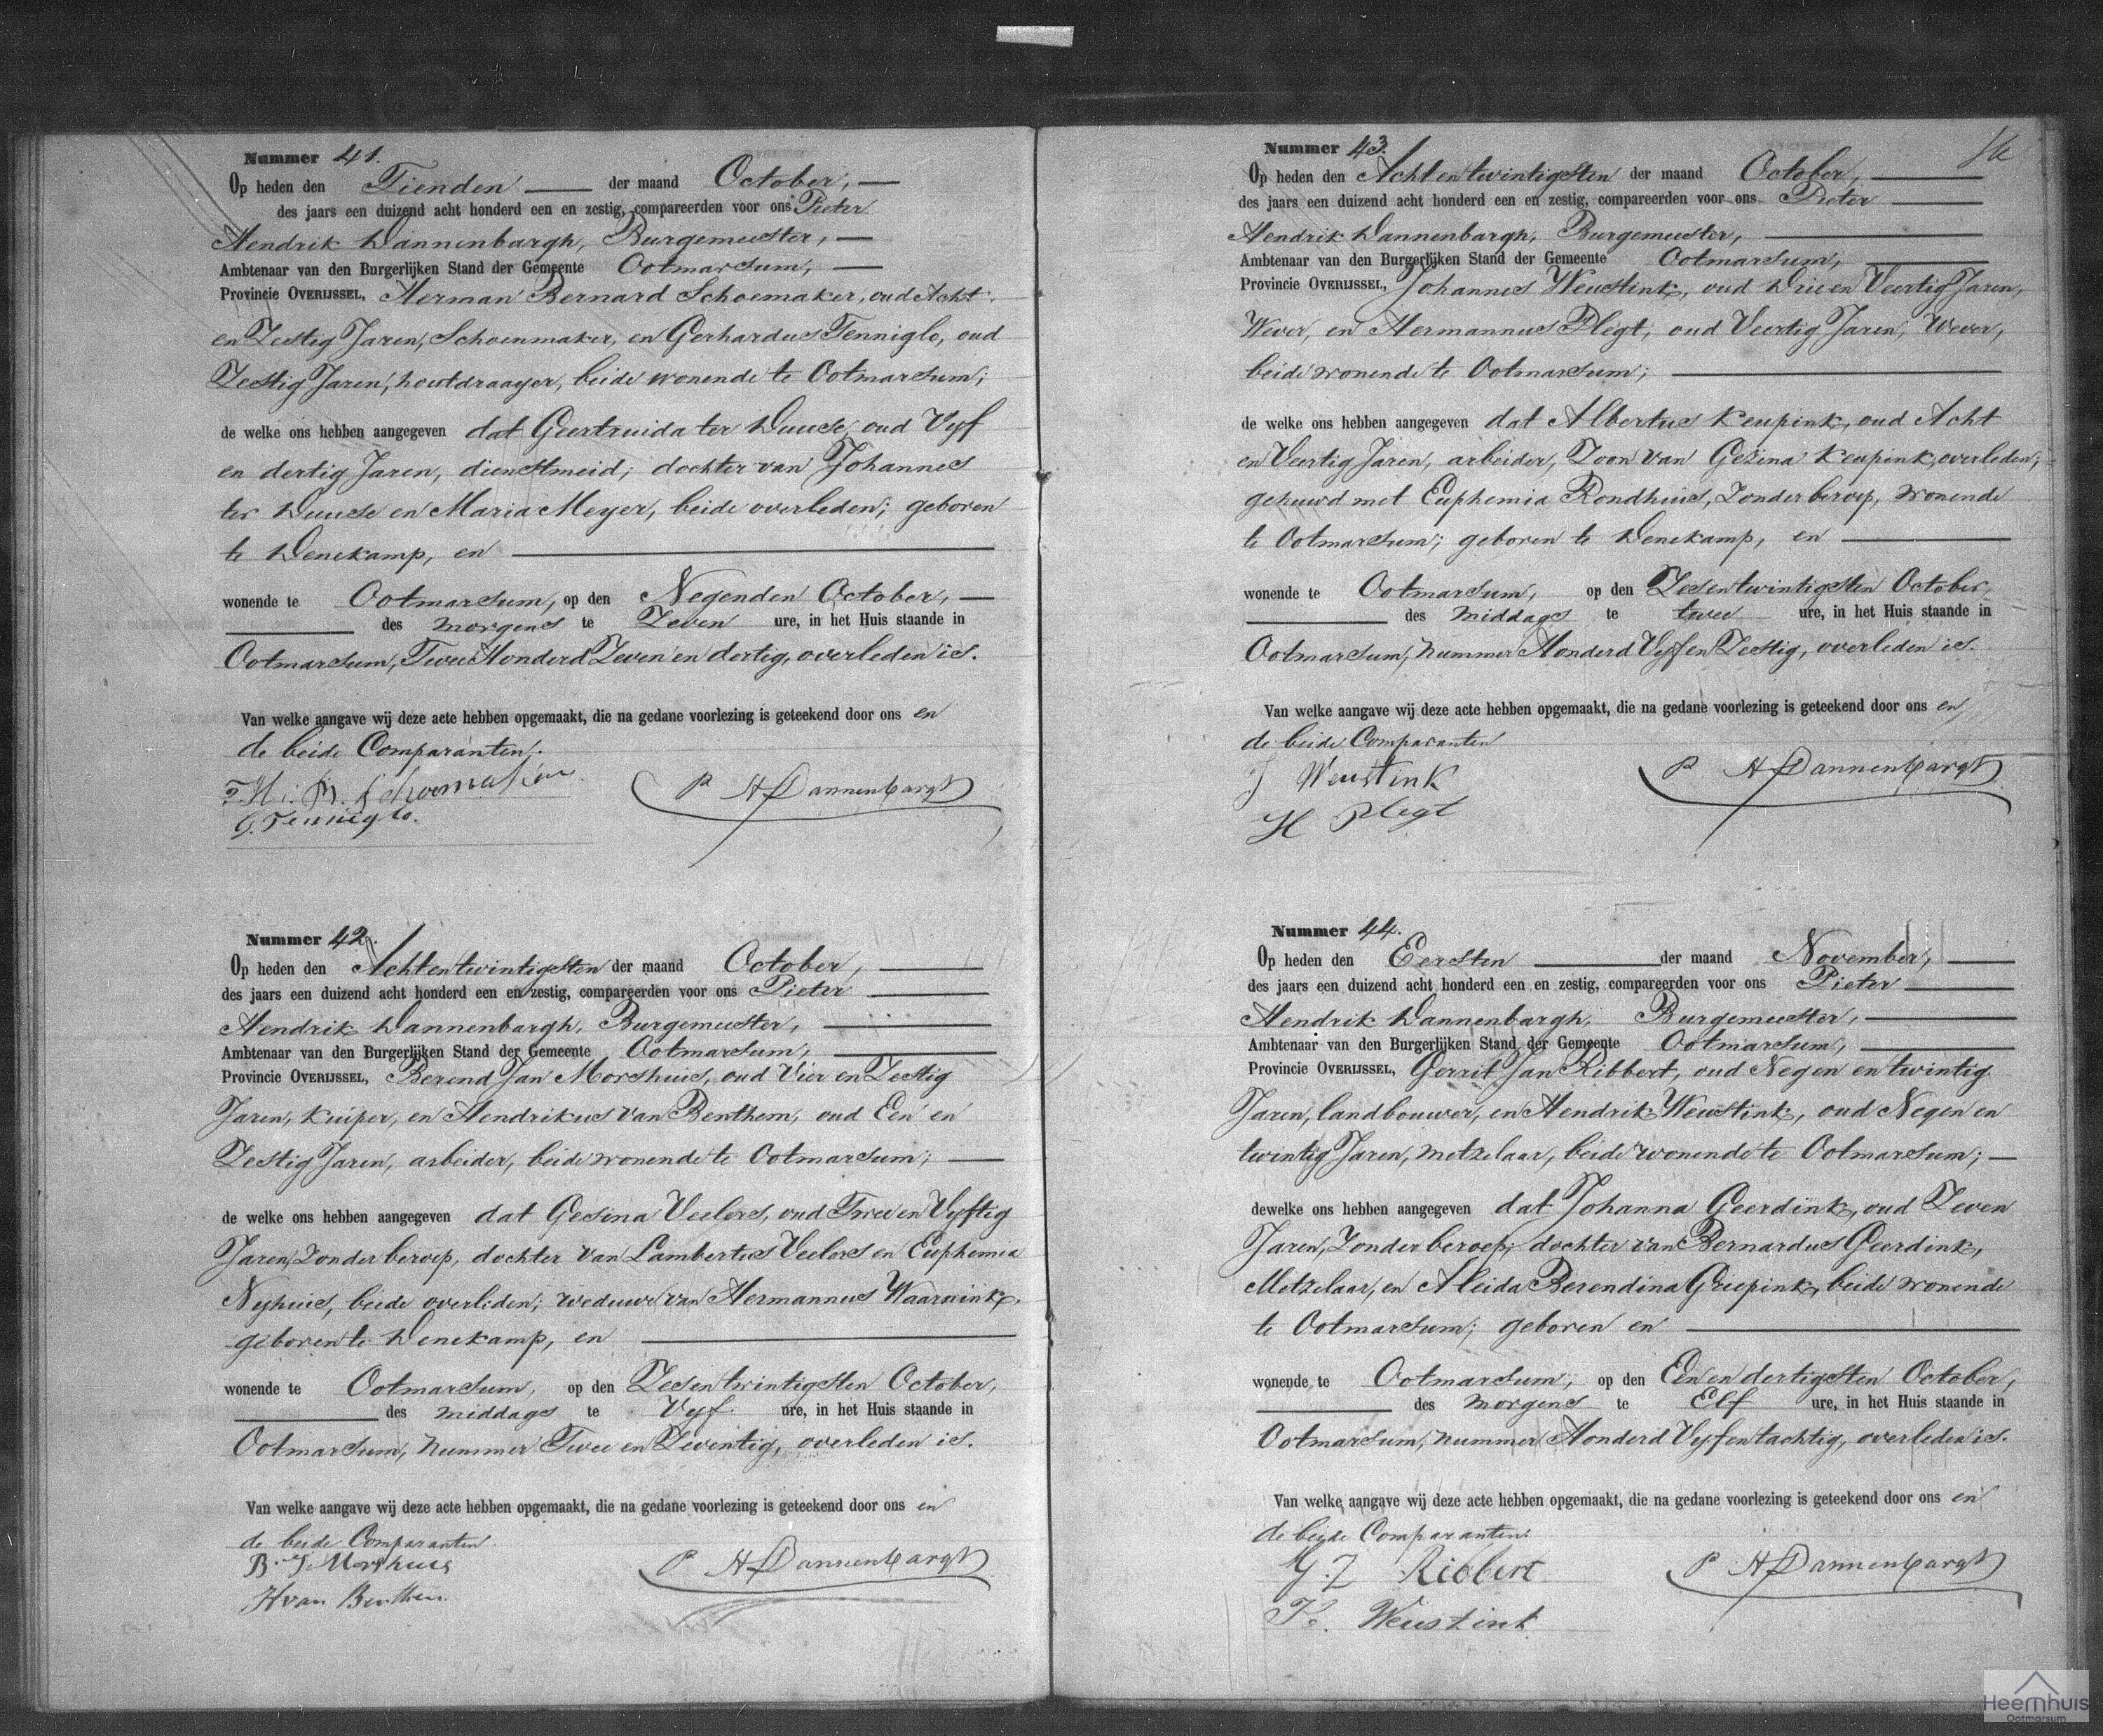 Nummer 41.
Op heden den Tienden der maand October,
des jaars een duizend acht honderd een en zestig, compareerden voor ons Pieter
Hendrik Dannenbargh, Burgemeester,
Ambtenaar van den Burgerlijken Stand der Gemeente Ootmarsum,
Provincie OVERIJSSEL, Herman Bernard Schoemaker, oud Acht
en Zestig Jaren, Schoenmaker, en Gerhardus Tenniglo, oud
Zestig Jaren, houtdraayer, beide wonende te Ootmarsum;
de welke ons hebben aangegeven dat Geertruida ter Duuse, oud Vyf
en dertig Jaren, dienstmeid, dochter van Johannes
ter Duuse en Maria Meyer, beide overleden; geboren
te Denekamp, en
wonende te Ootmarsum, op den Negenden October,
des morgens te Zeven ure, in het Huis staande in
Ootmarsum, Twee Honderd Zeven en dertig, overleden is.
Van welke aangave wij deze acte hebben opgemaakt, die na gedane voorlezing is geteekend door ons en
de beide Comparanten.
H. B. Schoemaker
G. Tenniglo.
P H Dannenbargh
Nummer 42.
Op heden den Achtentwintigsten der maand October,
des jaars een duizend acht honderd een en zestig, compareerden voor ons Pieter
Hendrik Dannenbargh, Burgemeester,
Ambtenaar van den Burgerlijken Stand der Gemeente Ootmarsum,
Provincie OVERIJSSEL, Berend Jan Morshuis, oud Vier en Zestig
Jaren, Kuiper, en Hendrikus van Benthem, oud Een en
Zestig Jaren, arbeider, beide wonende te Ootmarsum;
de welke ons hebben aangegeven dat Gesina Veelers, oud Twee en Vyftig
Jaren, Zonder beroep, dochter van Lambertus Veelers en Euphemia
Nyhuis, beide overleden; weduwe van Hermannus Waarnink,
geboren te Denekamp, en
wonende te Ootmarsum, op den Zesentwintigsten October,
des middags te Vyf ure, in het Huis staande in
Ootmarsum, nummer Twee en Zeventig, overleden is.
Van welke aangave wij deze acte hebben opgemaakt, die na gedane voorlezing is geteekend door ons en
de beide Comparanten
B. J. Morshuis
H van Benthem.
P H Dannenbargh
Nummer 43.
Op heden den Achtentwintigsten der maand October,
des jaars een duizend acht honderd een en zestig, compareerden voor ons Pieter
Hendrik Dannenbargh, Burgemeester,
Ambtenaar van den Burgerlijken Stand der Gemeente Ootmarsum,
Provincie OVERIJSSEL, Johannes Weustink, oud Drie en Veertig Jaren,
Wever, en Hermannus Plegt, oud Veertig Jaren, Wever,
beide wonende te Ootmarsum;
de welke ons hebben aangegeven dat Albertus Keupink, oud Acht
en Veertig Jaren, arbeider, Zoon van Gezina Keupink, overleden;
gehuwd met Euphemia Rondhuis, Zonder beroep, wonende
te Ootmarsum; geboren te Denekamp, en
wonende te Ootmarsum, op den Zesentwintigsten October,
des middags te twee ure, in het Huis staande in
Ootmarsum, nummer Honderd Vyf en Zestig, overleden is.
Van welke aangave wij deze acte hebben opgemaakt, die na gedane voorlezing is geteekend door ons en
de beide Comparanten
J Weustink
H Plegt
P H Dannenbargh
Nummer 44.
Op heden den Eersten der maand November,
des jaars een duizend acht honderd een en zestig, compareerden voor ons Pieter
Hendrik Dannenbargh, Burgemeester,
Ambtenaar van den Burgerlijken Stand der Gemeente Ootmarsum,
Provincie OVERIJSSEL, Gerrit Jan Ribbert, oud Negen en twintig
Jaren, landbouwer, en Hendrik Weustink, oud Negen en
twintig Jaren, metzelaar, beide wonende te Ootmarsum;
dewelke ons hebben aangegeven dat Johanna Geerdink, oud Zeven
Jaren, Zonder beroep, dochter van Bernardus Geerdink,
Metzelaar, en Aleida Berendina Griepink, beide wonende
te Ootmarsum; geboren en
wonende te Ootmarsum, op den Een en dertigsten October,
des morgens te Elf ure, in het Huis staande in
Ootmarsum, nummer Honderd Vyf en tachtig, overleden is.
Van welke aangave wij deze acte hebben opgemaakt, die na gedane voorlezing is geteekend door ons en
de beide Comparanten.
G. J Ribbert
H. Weustink
P H Dannenbargh
Heemhuis
Ootmarsum